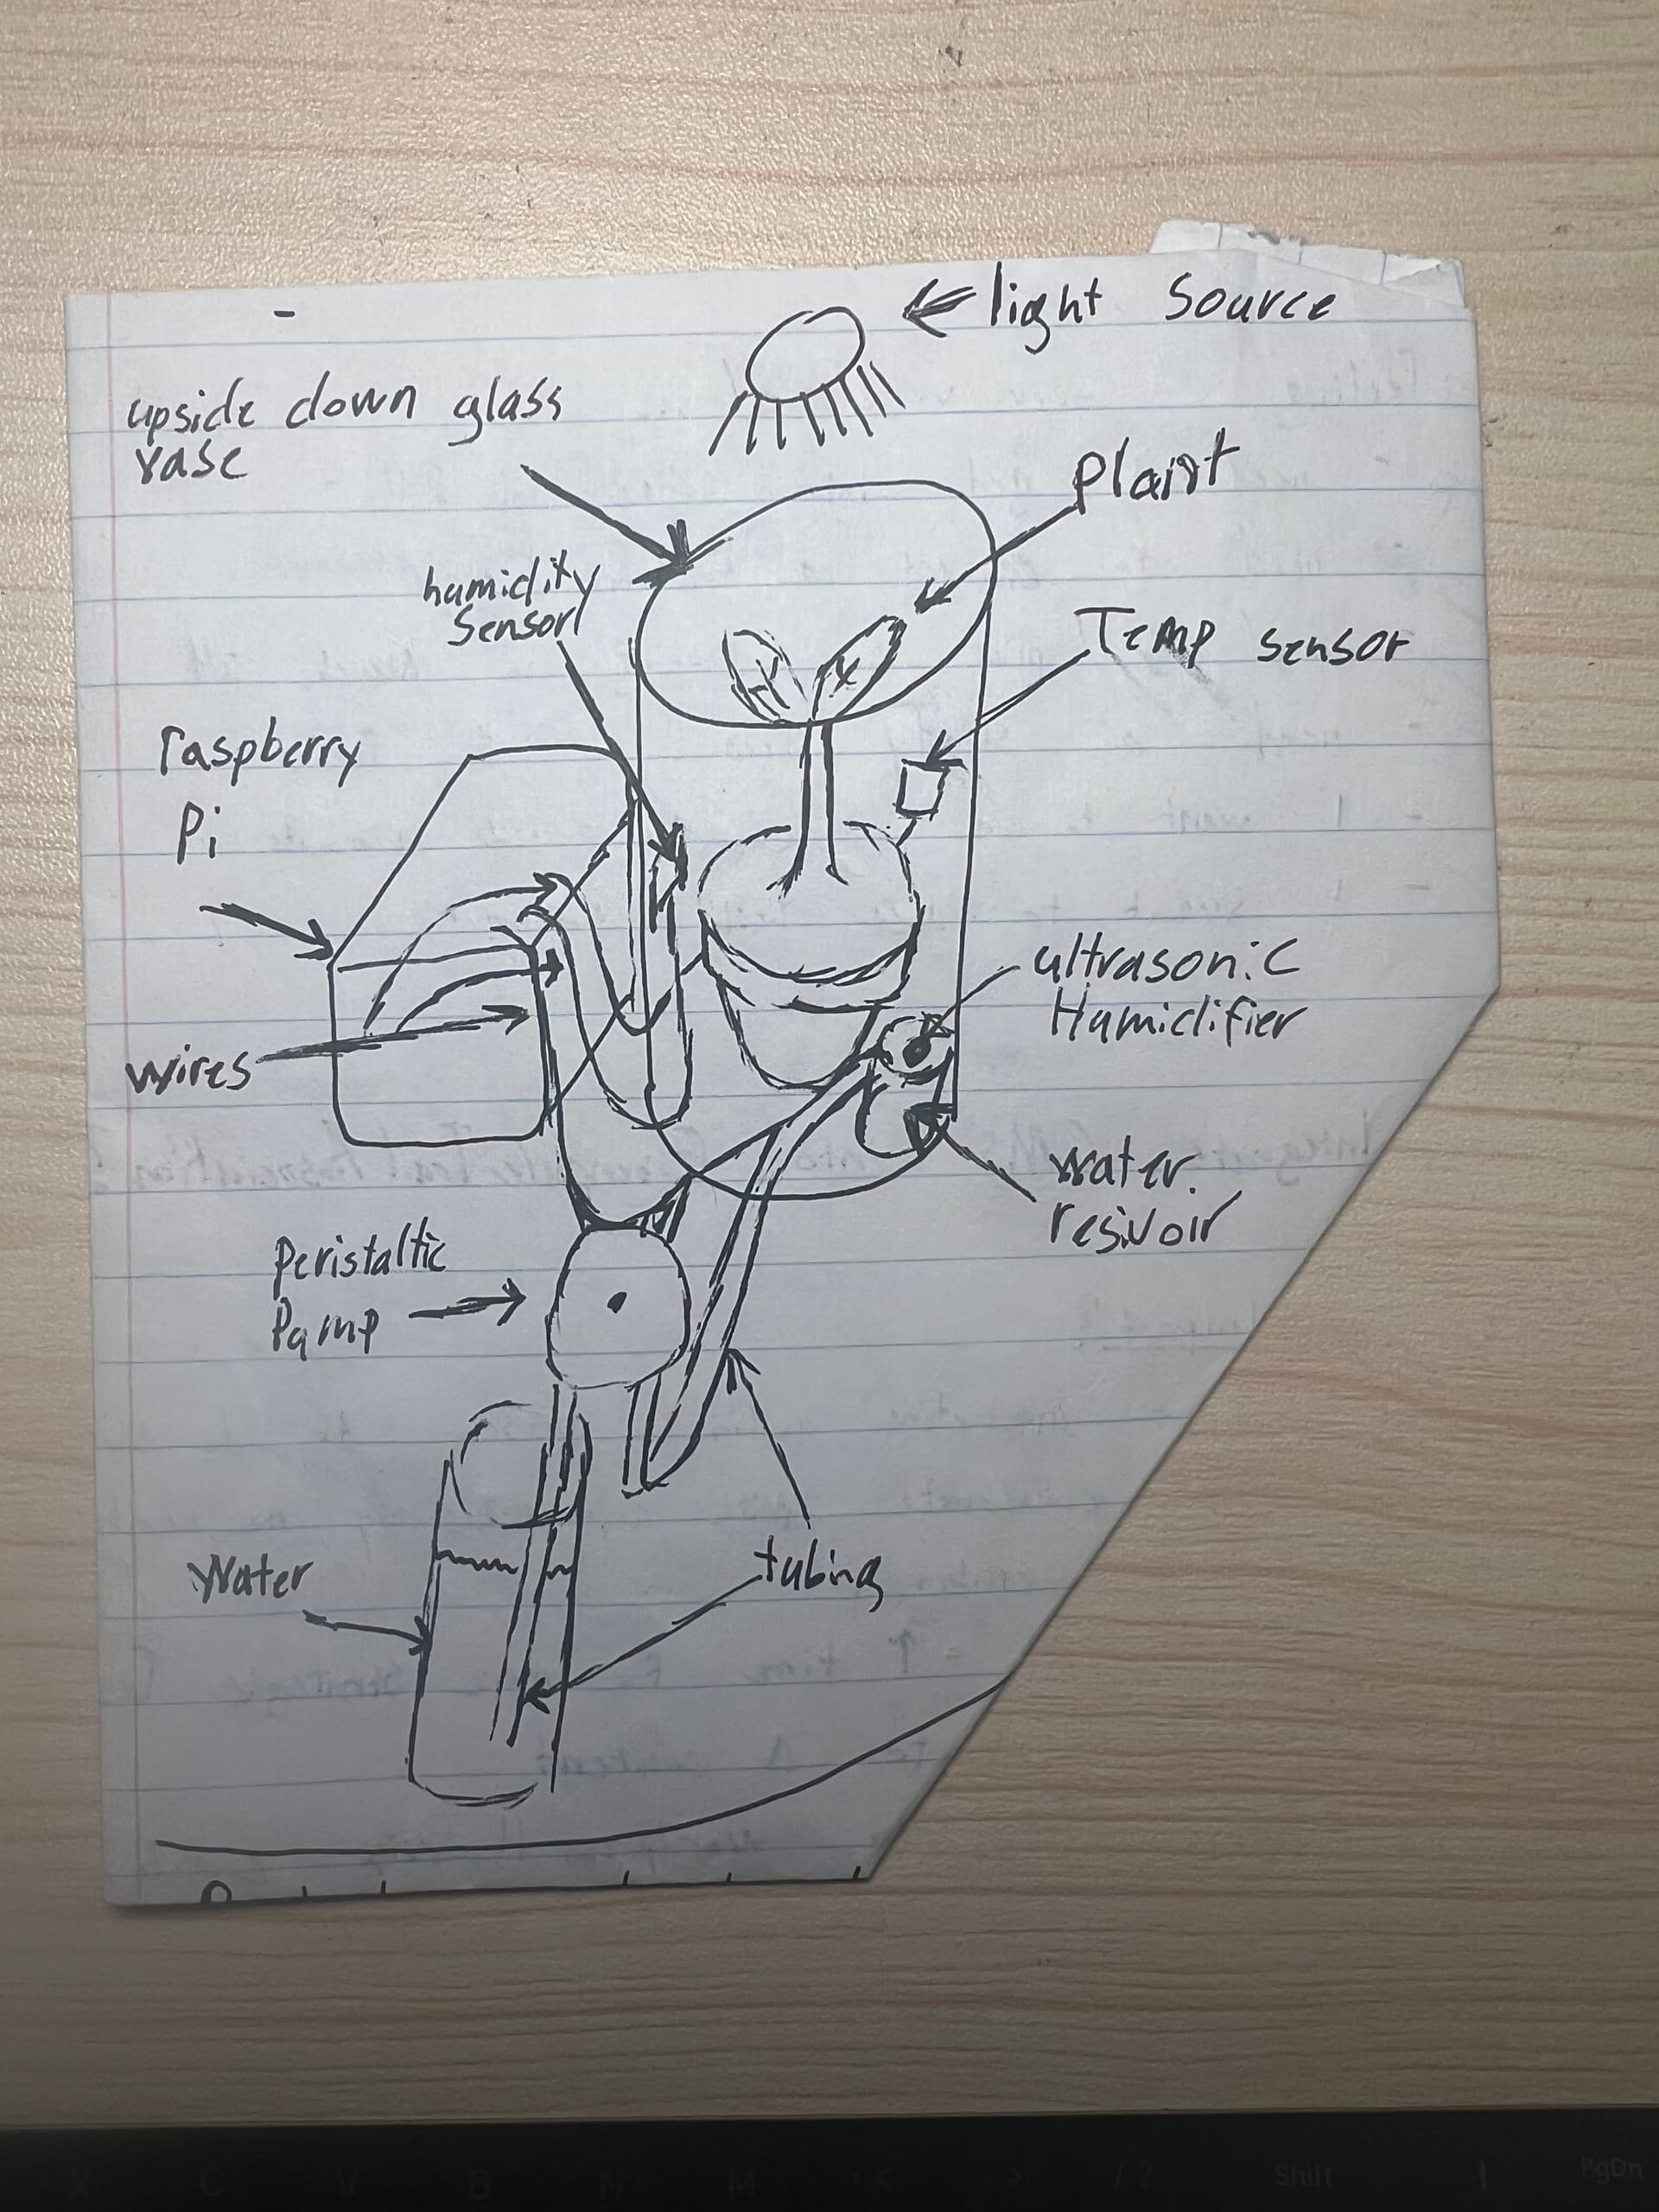 light Source
upside down glass
vase
Plant
humidity
Sensor
Temp sensor
raspberry
Pi
ultrasonic
Humidifier
wires
water
resivoir
Peristaltic
Pump
Water
tubing
Shift
PgDn